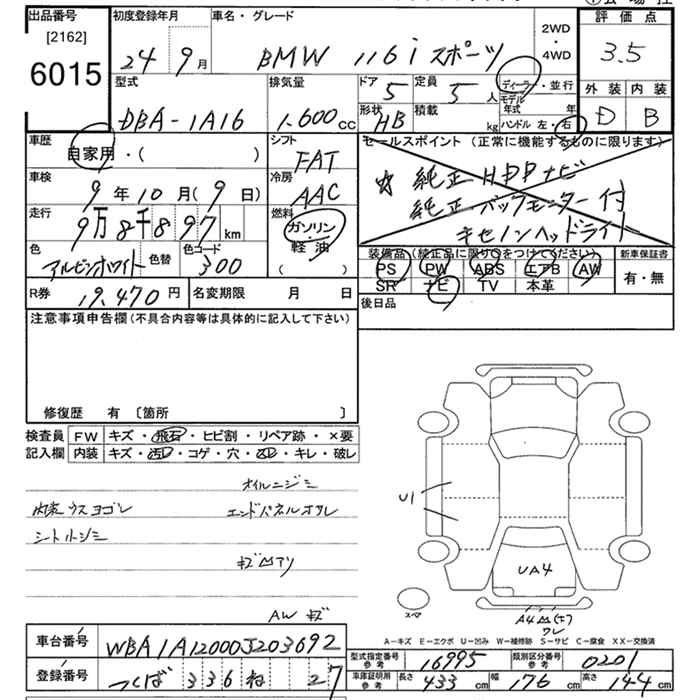 出品番号 初度登録年月 車名・グレード 2WD・4WD 評価点
[2162]
6015
24年9月 BMW 116i スポーツ 3.5
型式 排気量 ドア 定員 ディーラー・並行 外装 内装
DBA-1A16 1,600cc 5 5人 モデル年式 年 D B
形状 積載
HB kg ハンドル 左・右
車歴 シフト セールスポイント (正常に機能するものに限ります)
自家用・( ) FAT
車検 冷房 ☆ 純正HDDナビ
9年10月(9日) AAC 純正バックモニター付
走行 燃料 キセノンヘッドライト
9万8千897km ガソリン
軽油
( )
色 色替 色コード
アルピンホワイト 300
装備品 (純正品に限り○をつけてください) 新車保証書
PS PW ABS エアB AW 有・無
SR ナビ TV 本革
R券 19,470円 名変期限 月 日 後日品
注意事項申告欄(不具合内容等は具体的に記入して下さい)
修復歴 有 〔箇所 〕
検査員 FW キズ・飛石・ヒビ割・リペア跡・×要
記入欄 内装 キズ・汚レ・コゲ・穴・スレ・キレ・破レ
オイルニジミ
内装ウスヨゴレ エンドパネルオサレ
シートシミ
AW キズ
U1
UA4
スペア
A4
ワレ
A-キズ E-エクボ U-凹み W-補修跡 S-サビ C-腐食 XX-交換済
車台番号 WBA1A12000J203692
型式指定番号 参考 16995 類別区分番号 参考 0201
登録番号 つくば 336 ね 27
車庫証明用 参考 長さ 433cm 幅 176cm 高さ 144cm